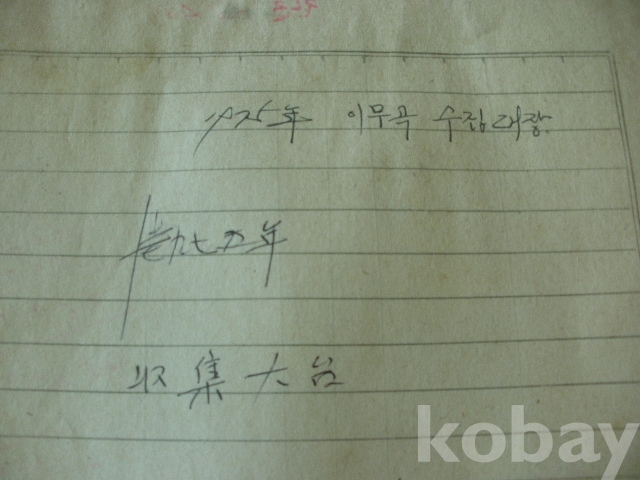 1975年 이무곡 수집대장
壱九七五年
収集大台
kobay